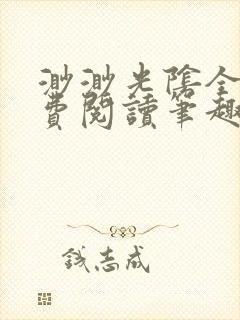 渺渺光陰全
費閱讀筆趣
錢志成